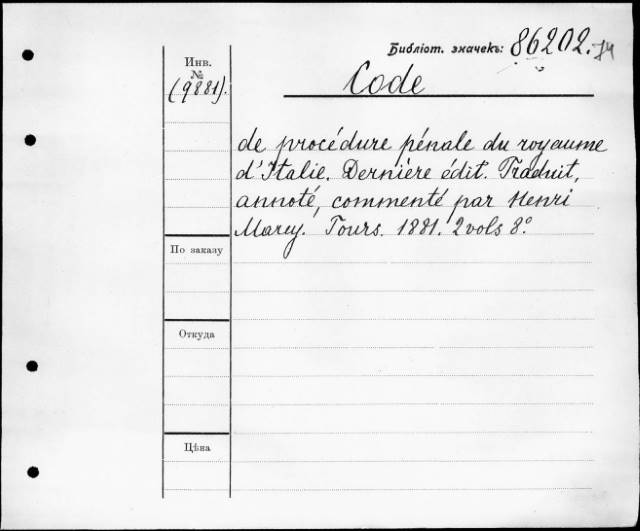 Библіот. значекъ: 86202.
Code
Инв.
№
(9881).
de procédure pénale du royaume
d'Italie. Dernière édit. Traduit,
annoté, commenté par Henri
Marcy. Tours. 1881. 2 vols 8º.
По заказу
Откуда
Цѣна